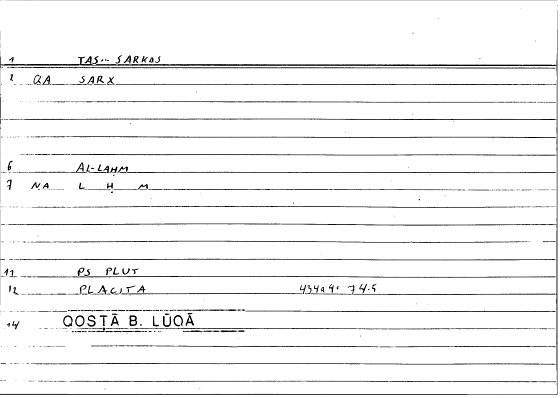 1 TAS-- SARKOS
2 QA SARX
6 AL-LAḤM
7 NA L Ḥ M
11 PS PLUT
12 PLACITA 434a4 74.5
14 QOSṬĀ B. LŪQĀ